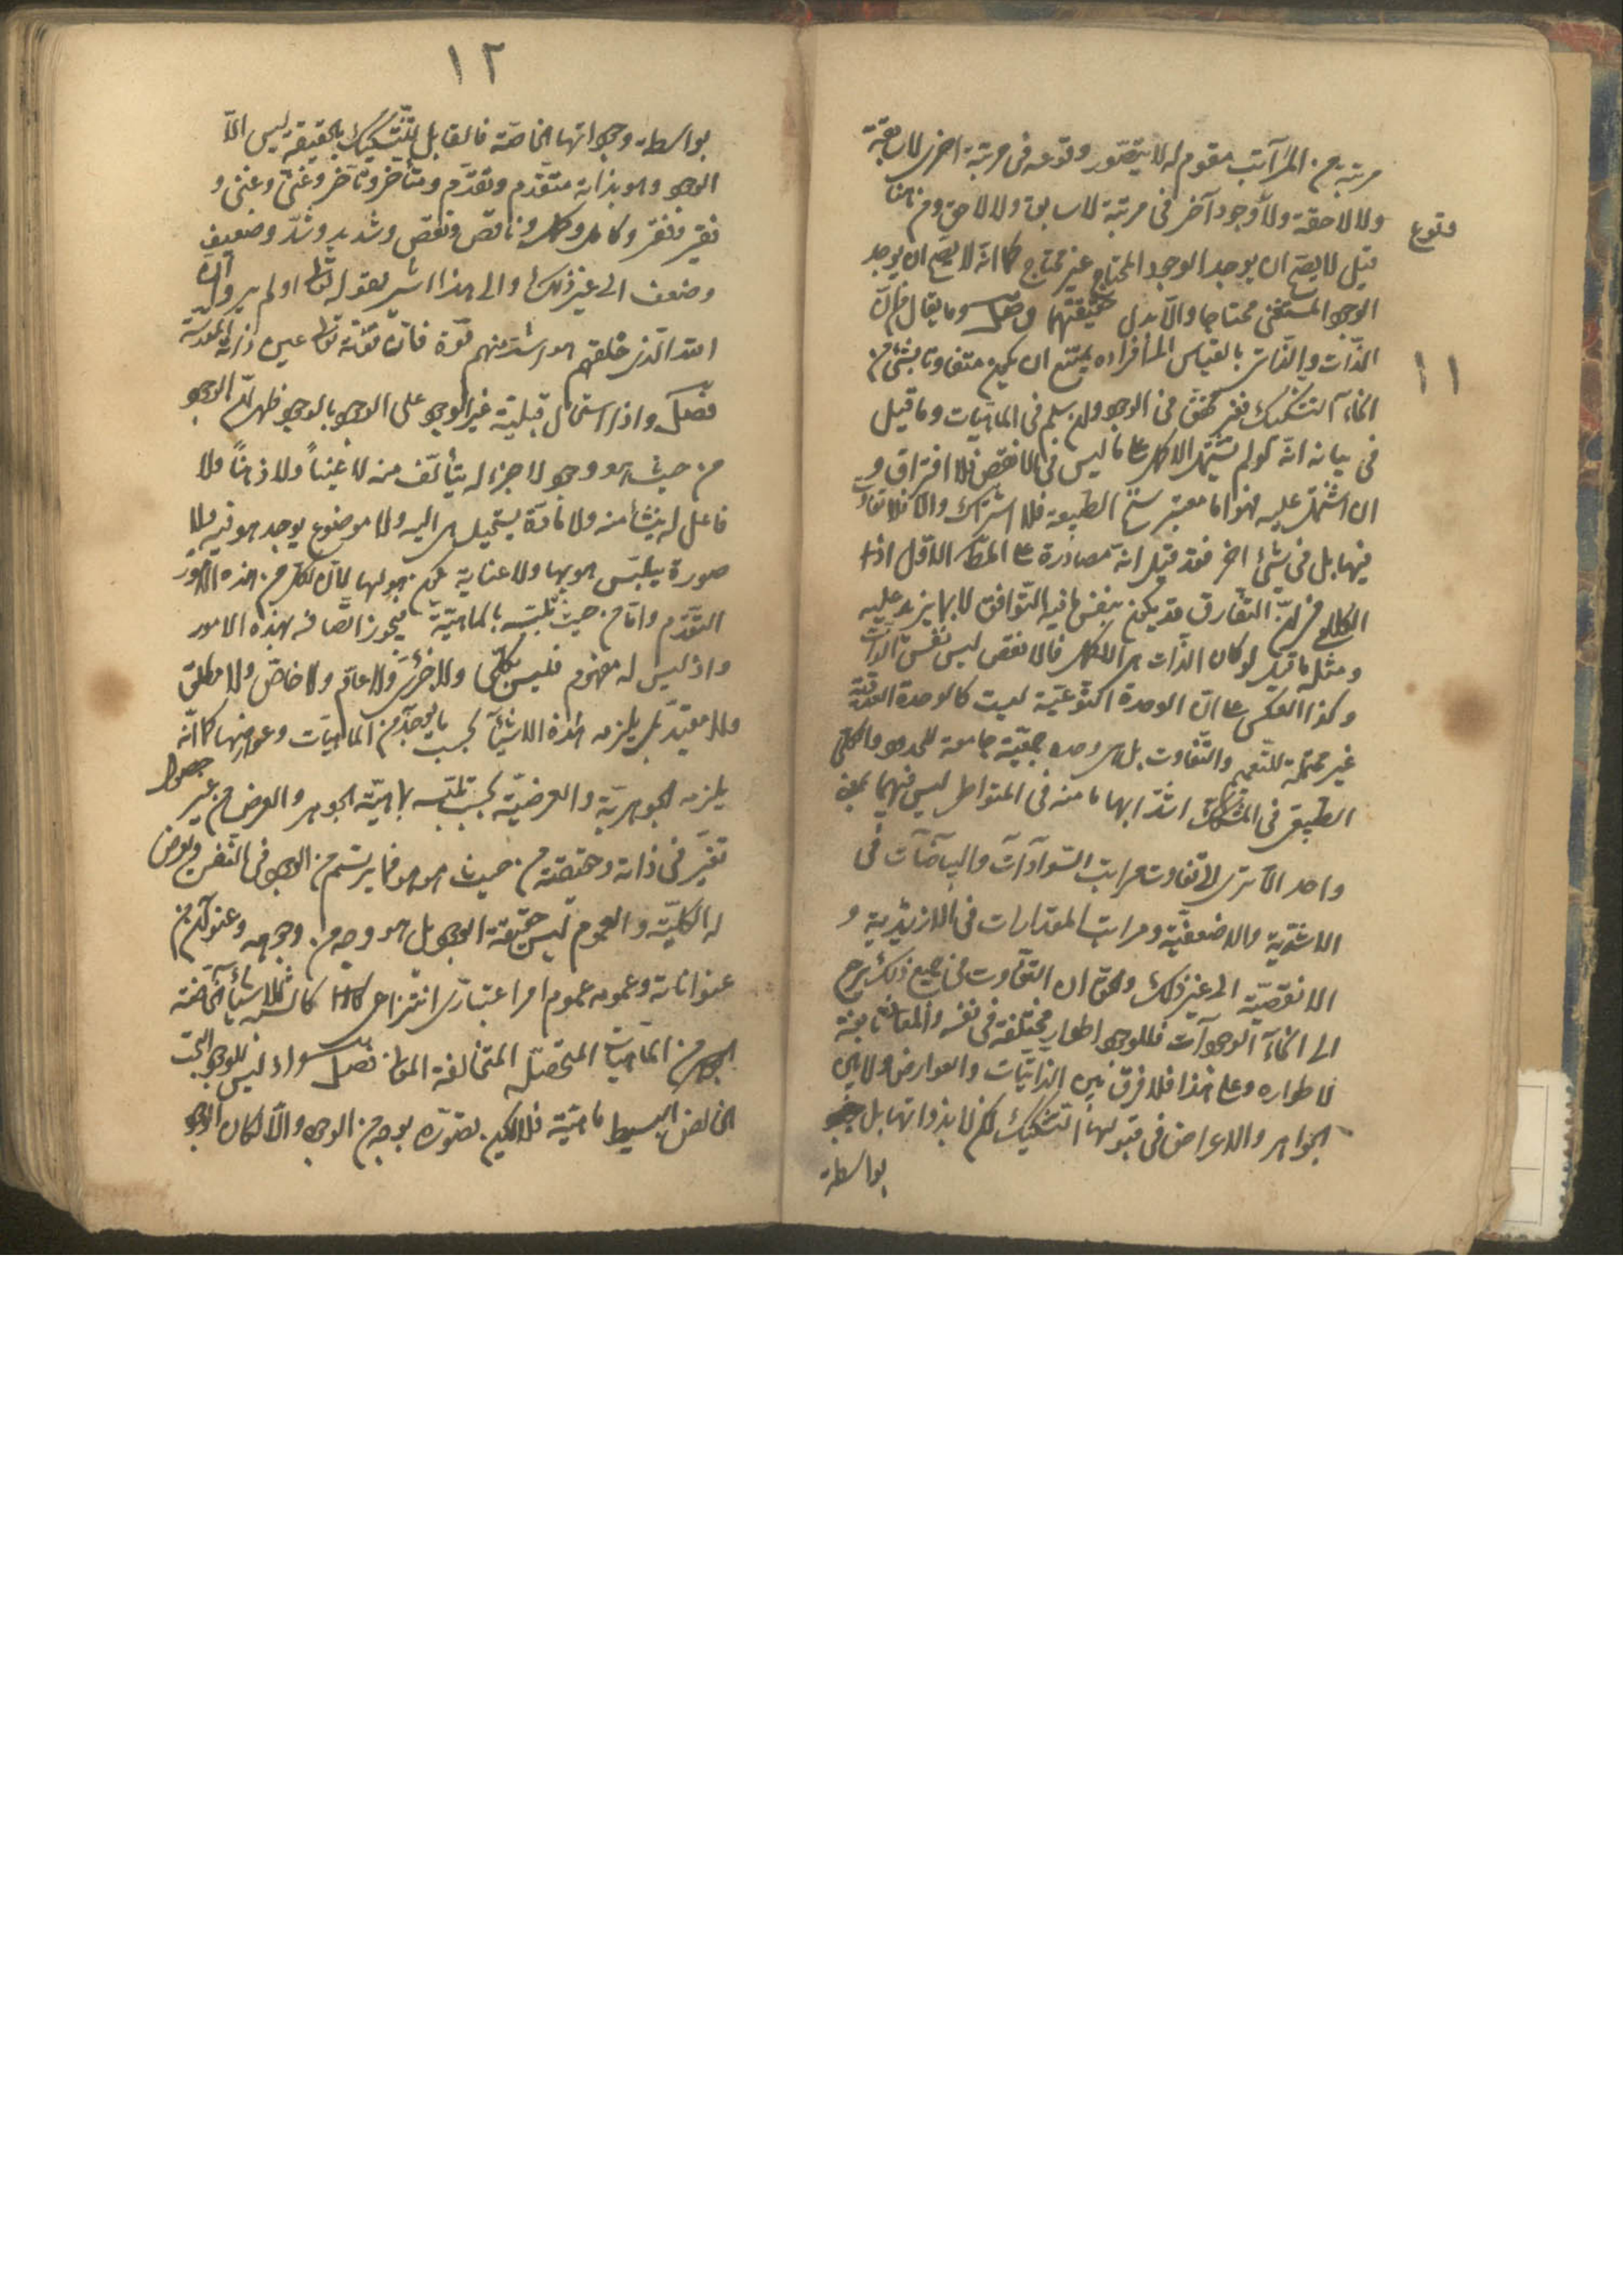 مرتبة من المراتب مقوم له لا يتصور وقوعه فى مرتبة اخرى لا سابقة
ولا لاحقة ولا وجود آخر فى مرتبة لا سابق ولا لاحق ومن هنا
وقوع
قيل لا يصح ان يوجد الوجود المحتاج غير محتاج كما انه لا يصح ان يوجد
الوجود المستغنى محتاجا والا بدل حقيقتهما وصل وما يقال من ان
١١
الذات والذاتى بالقياس الى افراده يمتنع ان يكون متفاوتا بشئ من
انحاء التشكيك فغير متحقق فى الوجود ولم يسلم فى الماهيات وما قيل
فى بيانه انه لو لم يشتمل الاكمل على ما ليس فى الانقص فلا افتراق و
ان اشتمل عليه فهو اما معتبر فى سنخ الطبيعة فلا اشتراك والا فلا تفاوت
فيها بل فى شئ اخر فقد قيل انه مصادرة على المط الاول اذ
الكلام فى ان التفارق قد يكون بنفس ما فيه التوافق لا بما يزيد عليه
ومثله ما قيل لو كان الذات هى الاكمل فالانقص ليس نفس الذات
وكذا العكس على ان الوحدة النوعية ليست كالوحدة العددية
غير محتملة للتعميم والتفاوت بل هى وحدة جمعية جامعة للحدود والكلى
الطبيعى فى المشكك اشد ابهاما منه فى المتواطى ليس فيهما بمعنى
واحد الا ترى الى تفاوت مراتب السوادات والبياضات فى
الاشدية والاضعفية ومراتب المقدارات فى الازيدية و
الانقصية الى غير ذلك والحق ان التفاوت فى جميع ذلك يرجع
الى انحاء الوجودات فللوجود اطوار مختلفة فى نفسه والمعانى تابعة
لاطواره وعلى هذا فلا فرق بين الذاتيات والعوارض ولا بين
الجواهر والاعراض فى قبولها التشكيك لكن لا بذواتها بل
بواسطة
١٢
بواسطة وجوداتها الخاصة فالقابل للتشكيك بالحقيقة ليس الا
الوجود وهو بذاته متقدم وتقدم ومتأخر وتأخر وغنى وغنى و
فقير وفقر وكامل وكمال وناقص ونقص وشديد وشدة وضعيف
وضعف الى غير ذلك والى هذا اشير بقوله تعالى اولم يروا ان
الله الذى خلقهم هو اشد منهم قوة فان قوته تعالى عين ذاته المقدسة
فصل واذا استحال قبلية غير الوجود على الوجود بالوجود ظهر ان الوجود
من حيث هو وجود لا جزء له يتألف منه لا عينا ولا ذهنا ولا
فاعل له ينشأ منه ولا مادة يستحيل هى اليه ولا موضوع يوجد هو فيه ولا
صورة يتلبس هو بها ولا غاية يكون هو لها لان لكل من هذه الامور
التقدم واما من حيث تلبسه بالماهية فيجوز اتصافه بهذه الامور
واذ ليس له مفهوم فليس بكلى ولا جزئى ولا عام ولا خاص ولا مطلق
ولا مقيد بل يلزمه هذه الاشياء بحسب ما يوجد من الماهيات وعوارضها كما انه
يلزمه الجوهرية والعرضية بحسب تلبسه بماهية الجوهر والعرض من غير حصول
تغير فى ذاته وحقيقته من حيث هو هو فما يرتسم من الوجود فى النفس ويعرض
له الكلية والعموم ليس حقيقة الوجود بل هو وجه من وجوهه وعنوان من
عنواناته وعمومه عموم امر اعتبارى انتزاعى كالشيئية للاشياء الخاصة
من الماهيات المتحصلة المتخالفة المعانى فصل واذ ليس للوجود البحت
الخالص البسيط ماهية فلا يمكن تصوره بوجه من الوجوه والا لكان الوجود